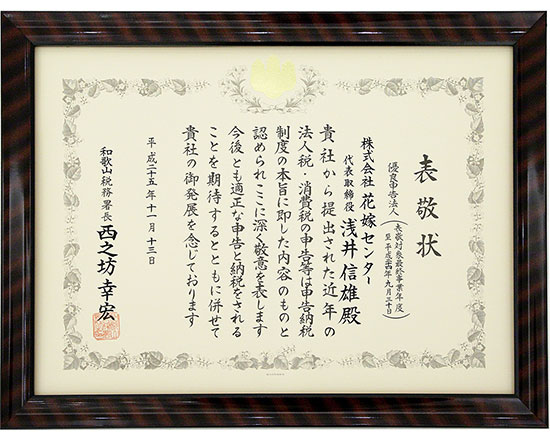 表敬状
優良申告法人
(表敬対象最終事業年度
至 平成二十四年九月三十日)
株式会社 花嫁センター
代表取締役 浅井信雄殿
貴社から提出された近年の
法人税・消費税の申告等は申告納税
制度の本旨に即した内容のものと
認められここに深く敬意を表します
今後とも適正な申告と納税をされる
ことを期待するとともに併せて
貴社の御発展を念じております
平成二十五年十一月十三日
和歌山税務署長 西之坊幸宏